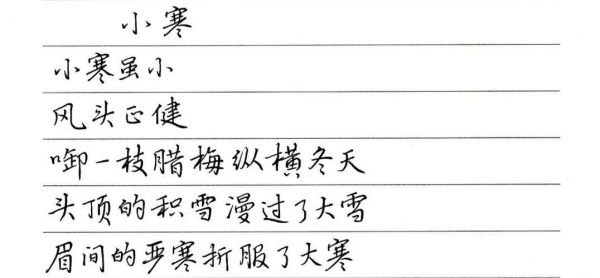 小寒
小寒虽小
风头正健
啣一枝腊梅纵横冬天
头顶的积雪漫过了大雪
眉间的严寒折服了大寒